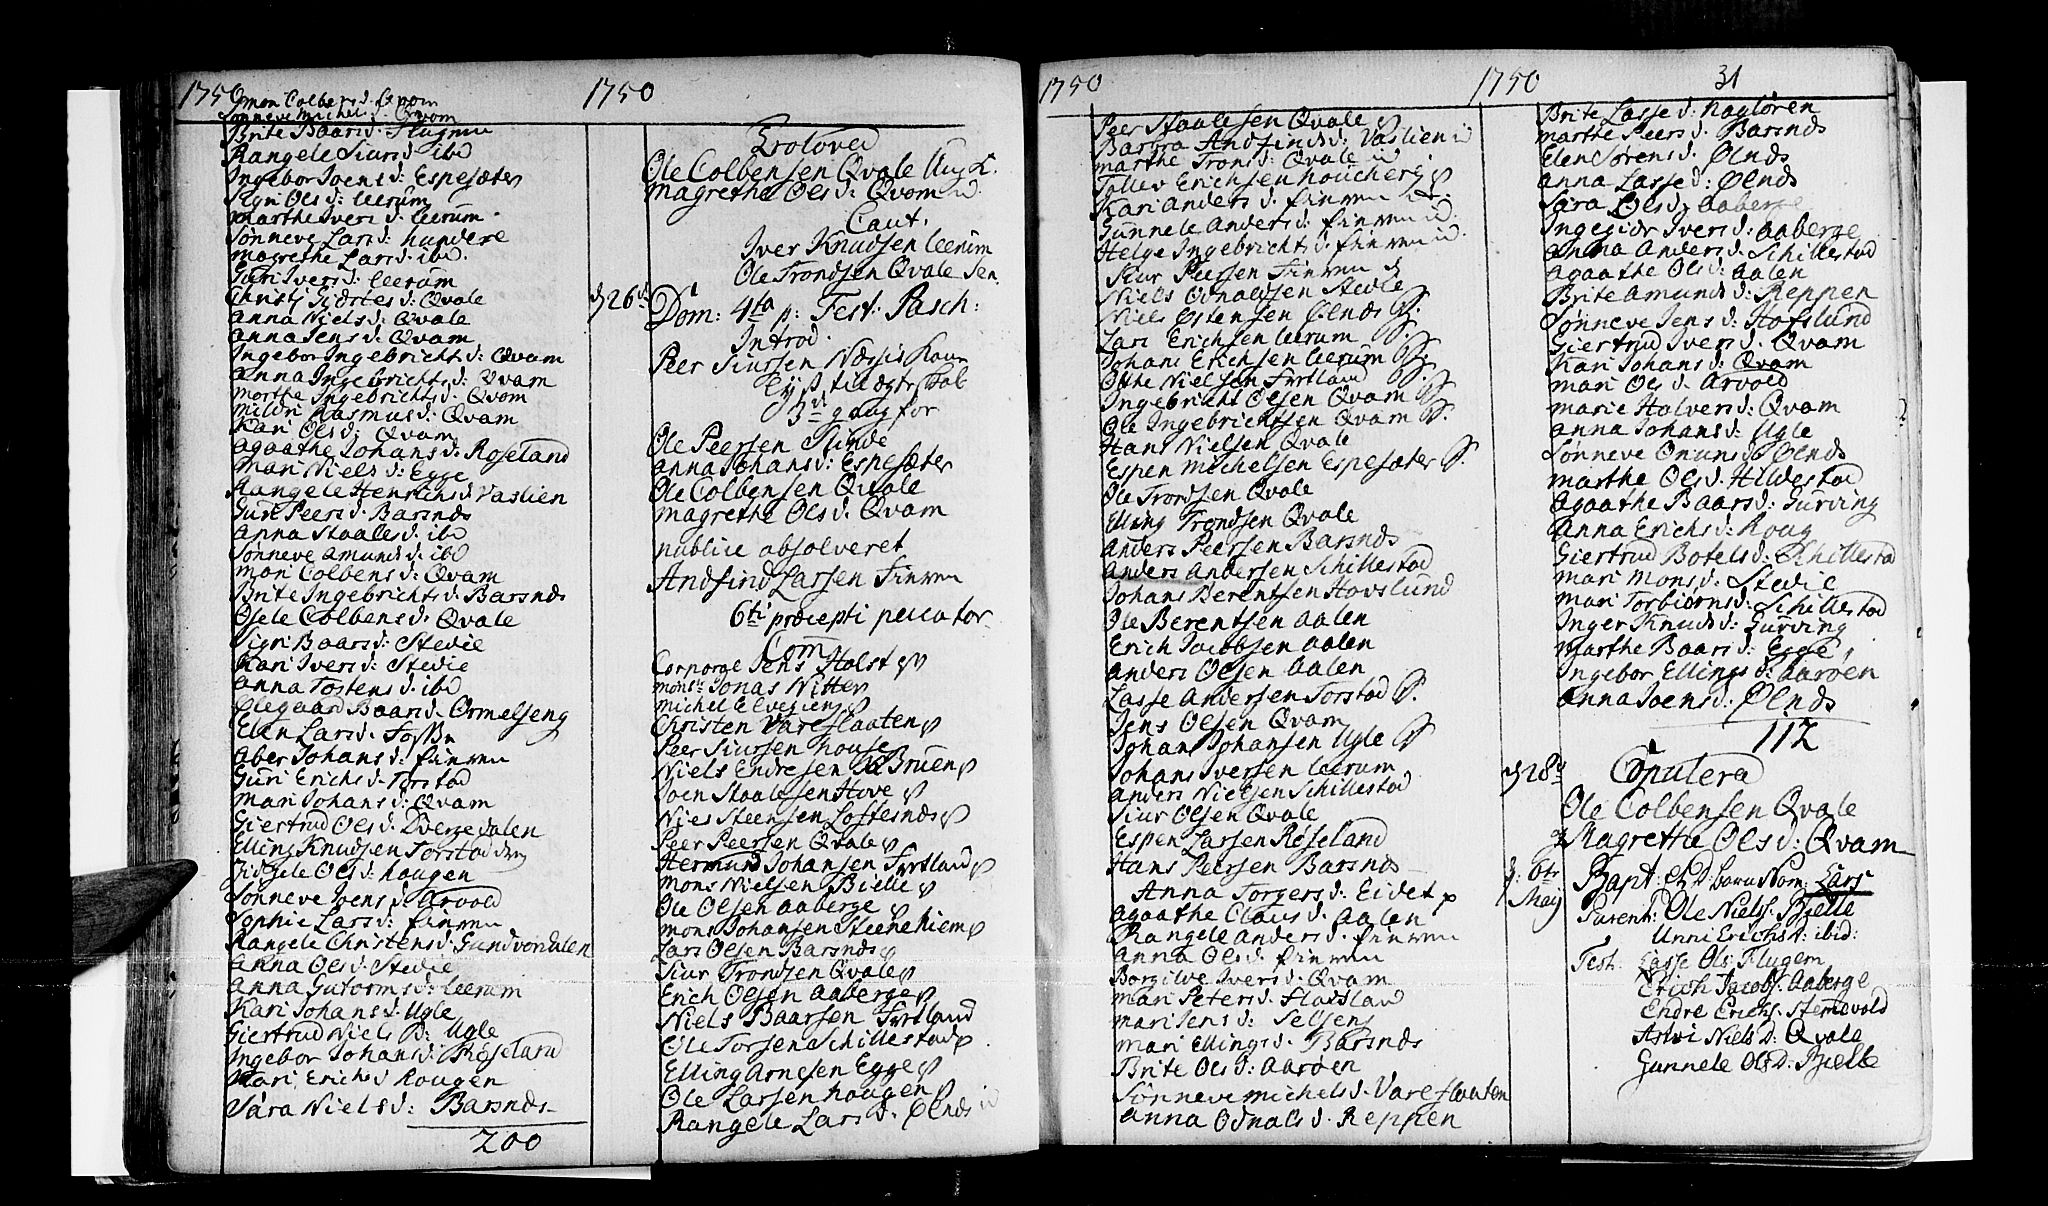 1750
1750
Sønneve Michels d. Qvam
Brite Baars d. Flugem
Rangele Siurs d. ibd
Ingebor Joens d: Espesæter
Syn Ols d: Leerum
Marthe Ivers d. Leerum
Sønneve Lars d: Hundere
Magrethe Lars d. ibd.
Guri Ivers d: Leerum
Christi Giertes d: Qvale
Anna Niels d: Qvale
Anna Jens d: Qvam
Ingebor Ingebricht d: Qvam
Anna Ingebrichts d: Qvam
Marthe Ingebrichts d. Qvam
Mildri Rasmus d: Qvam
Kari Ols d: Qvam
Agaathe Johans d: Roseland
Mari Niels d: Egge
Rangele Henrichs d: Vaslien
Guri Peers d: Barsnds
Anna Staales d: ibd
Sønneve Amunds d: ibd
Mari Colbens d: Qvam
Brite Ingebrichts d: Barsnds
Osele Colbens d: Qvale
Sigri Baars d: Stedie
Kari Ivers d: Stedie
Anna Tostens d. ibd
Olegaard Baars d. Ormelseng
Elen Lars d.
Aber Johans d: Finven
Guri Erichs d. Torstad
Mari Johans d: Qvam
Giertrud Ols d. Dvergedalen
Elling Knudsen Torstad
Sidzele Ols d: Hougen
Sønneve Joens d: Arvold
Sophie Lars d: Finven
Rangele Christens d: Gundvordalen
Anna Ols d. Stedie
Anna Gutorms d: Leerum
Kari Johans d: Ugle
Giertrud Niels D: Ugle
Ingebor Johans d: Røseland
Mari Erichs d Hougen
Sara Niels d: Barsnds
200
Trolova
Ole Colbensen Qvale Ung K.
Magrethe Ols d: Qvam
Caut.
Iver Knudsen Leerum
Ole Trondsen Qvale Sen.
d 26d
Dom: 4ta p: Fest: Pasch:
Introd.
Peer Siursen
Lyst til Ægteskab
3d gang for
Ole Peersen Slinde
Anna Johans d: Espesæter
Ole Colbensen Qvale
Magrethe Ols d. Qvam
publice absolveret
Andfind Larsen Finven
6ti præcepti peccator
Com
Corporge Jens Holst
Mons: Jonas Nitter
Michel Elvegien
Christen Vareflaaten
Peer Siursen House
Niels Endresen Bruen
Joen Staalesen Hove
Niels Steensen Loftesnds
Peer Peersen Qvale
Hermund Johansen Fyrtland
Mons Nielsen Bielle
Ole Olsen Aaberge
Mons Johansen Steenehiem
Lars Olsen Barsnds
Siur Trondsen Qvale
Erich Olsen Aaberge
Niels Baarsen Fyrtland
Ole Torsen Schillestad
Elling Arnesen Egge
Ole Larsen Hougen
Rangele Lars d. Ølnds
1750
1750
31
Peer Staalesen Qvale
Barbra Andfinds d: Vaslien
Marthe Trons d: Qvale
Tollev Erichsen Houcherg
Kari Anders d. Finven
Gunnele Anders d. Finven
Helge Ingebricht d. Finven
Siur Peersen Finven
Niels Odnaldsen Stedie
Niels Estensen Ølnds
Lars Erichsen Leerum
Johans Erichsen Leerum
Otthe Nielsen Fyrtland
Ingebricht Olsen Qvam
Ole Ingebrichtsen Qvam
Hans Nielsen Qvale
Espen Michelsen Espesæter
Ole Trondsen Qvale
Elling Trondsen Qvale
Anders Peersen Barsnds
Anders Andersen Schillestad
Johans Berentsen Hovslund
Ole Berentsen Aalen
Erich Jacobsen Aalen
Anders Olsen Aalen
Lasse Andersen Torstad
Jens Olsen Qvam
Johans Johansen Ugle
Johans Iversen Leerum
Anders Nielsen Schillestad
Siur Olsen Qvale
Espen Larsen Røseland
Hans Peersen Barsnds
Anna Torgers d: Eidet
Agaathe Claus d. Aalen
Rangele Anders d. Finven
Anna Ols d: Finven
Borgilde Ivers d: Qvam
Mari Peters d. Fladsland
Mari Jens d: Selseng
Mari Ellings d: Barsnds
Brite Ols d: Aarøen
Sønneve Michels d. Vareflaaten
Anna Odnals d: Reppen
Brite Lasse d: Nagløren
Marthe Peers d. Barsnds
Elen Sørens d. Ølnds
Anna Lasse d: Ølnds
Sara Ols d: Aaberge
Ingegiør Ivers d: Aaberge
Anna Anders d: Schillestad
Agaathe Ols d: Aalen
Brite Amunds d: Reppen
Sønneve Jens d: Hofslund
Giertrud Ivers d: Qvam
Kari Johans d: Qvam
Mari Ols d. Arvold
Marie Halvers d: Qvam
Anna Johans d: Ugle
Sønneve Onuns d Ølnds
Marthe Ols d: Hildestad
Agaathe Baars d: Gurving
Anna Erichs d: Houg
Giertrud Botels d: Schillestad
Mari Mons d: Stedie
Mari Torbiørns d: Schillestad
Inger Knuds d: Gurving
Marthe Baars d: Egge
Ingebor Ellings d: Aarøen
Anna Joens d: Ølnds
112
d 28d
Copulerd
Ole Colbensen Qvale
og Magrethe Ols d: Qvam
d: 6te
Maij
Bapt: et D: barn Nom: Lars
Parent: Ole Niels: Bjelle
Unni Erichs d: ibid:
Test. Lasse Ols: Flugem
Erich Jacobs: Aaberge
Endre Erichs: Stennevold
Astri Niels D: Qvale
Gunnele Ols D: Bjelle